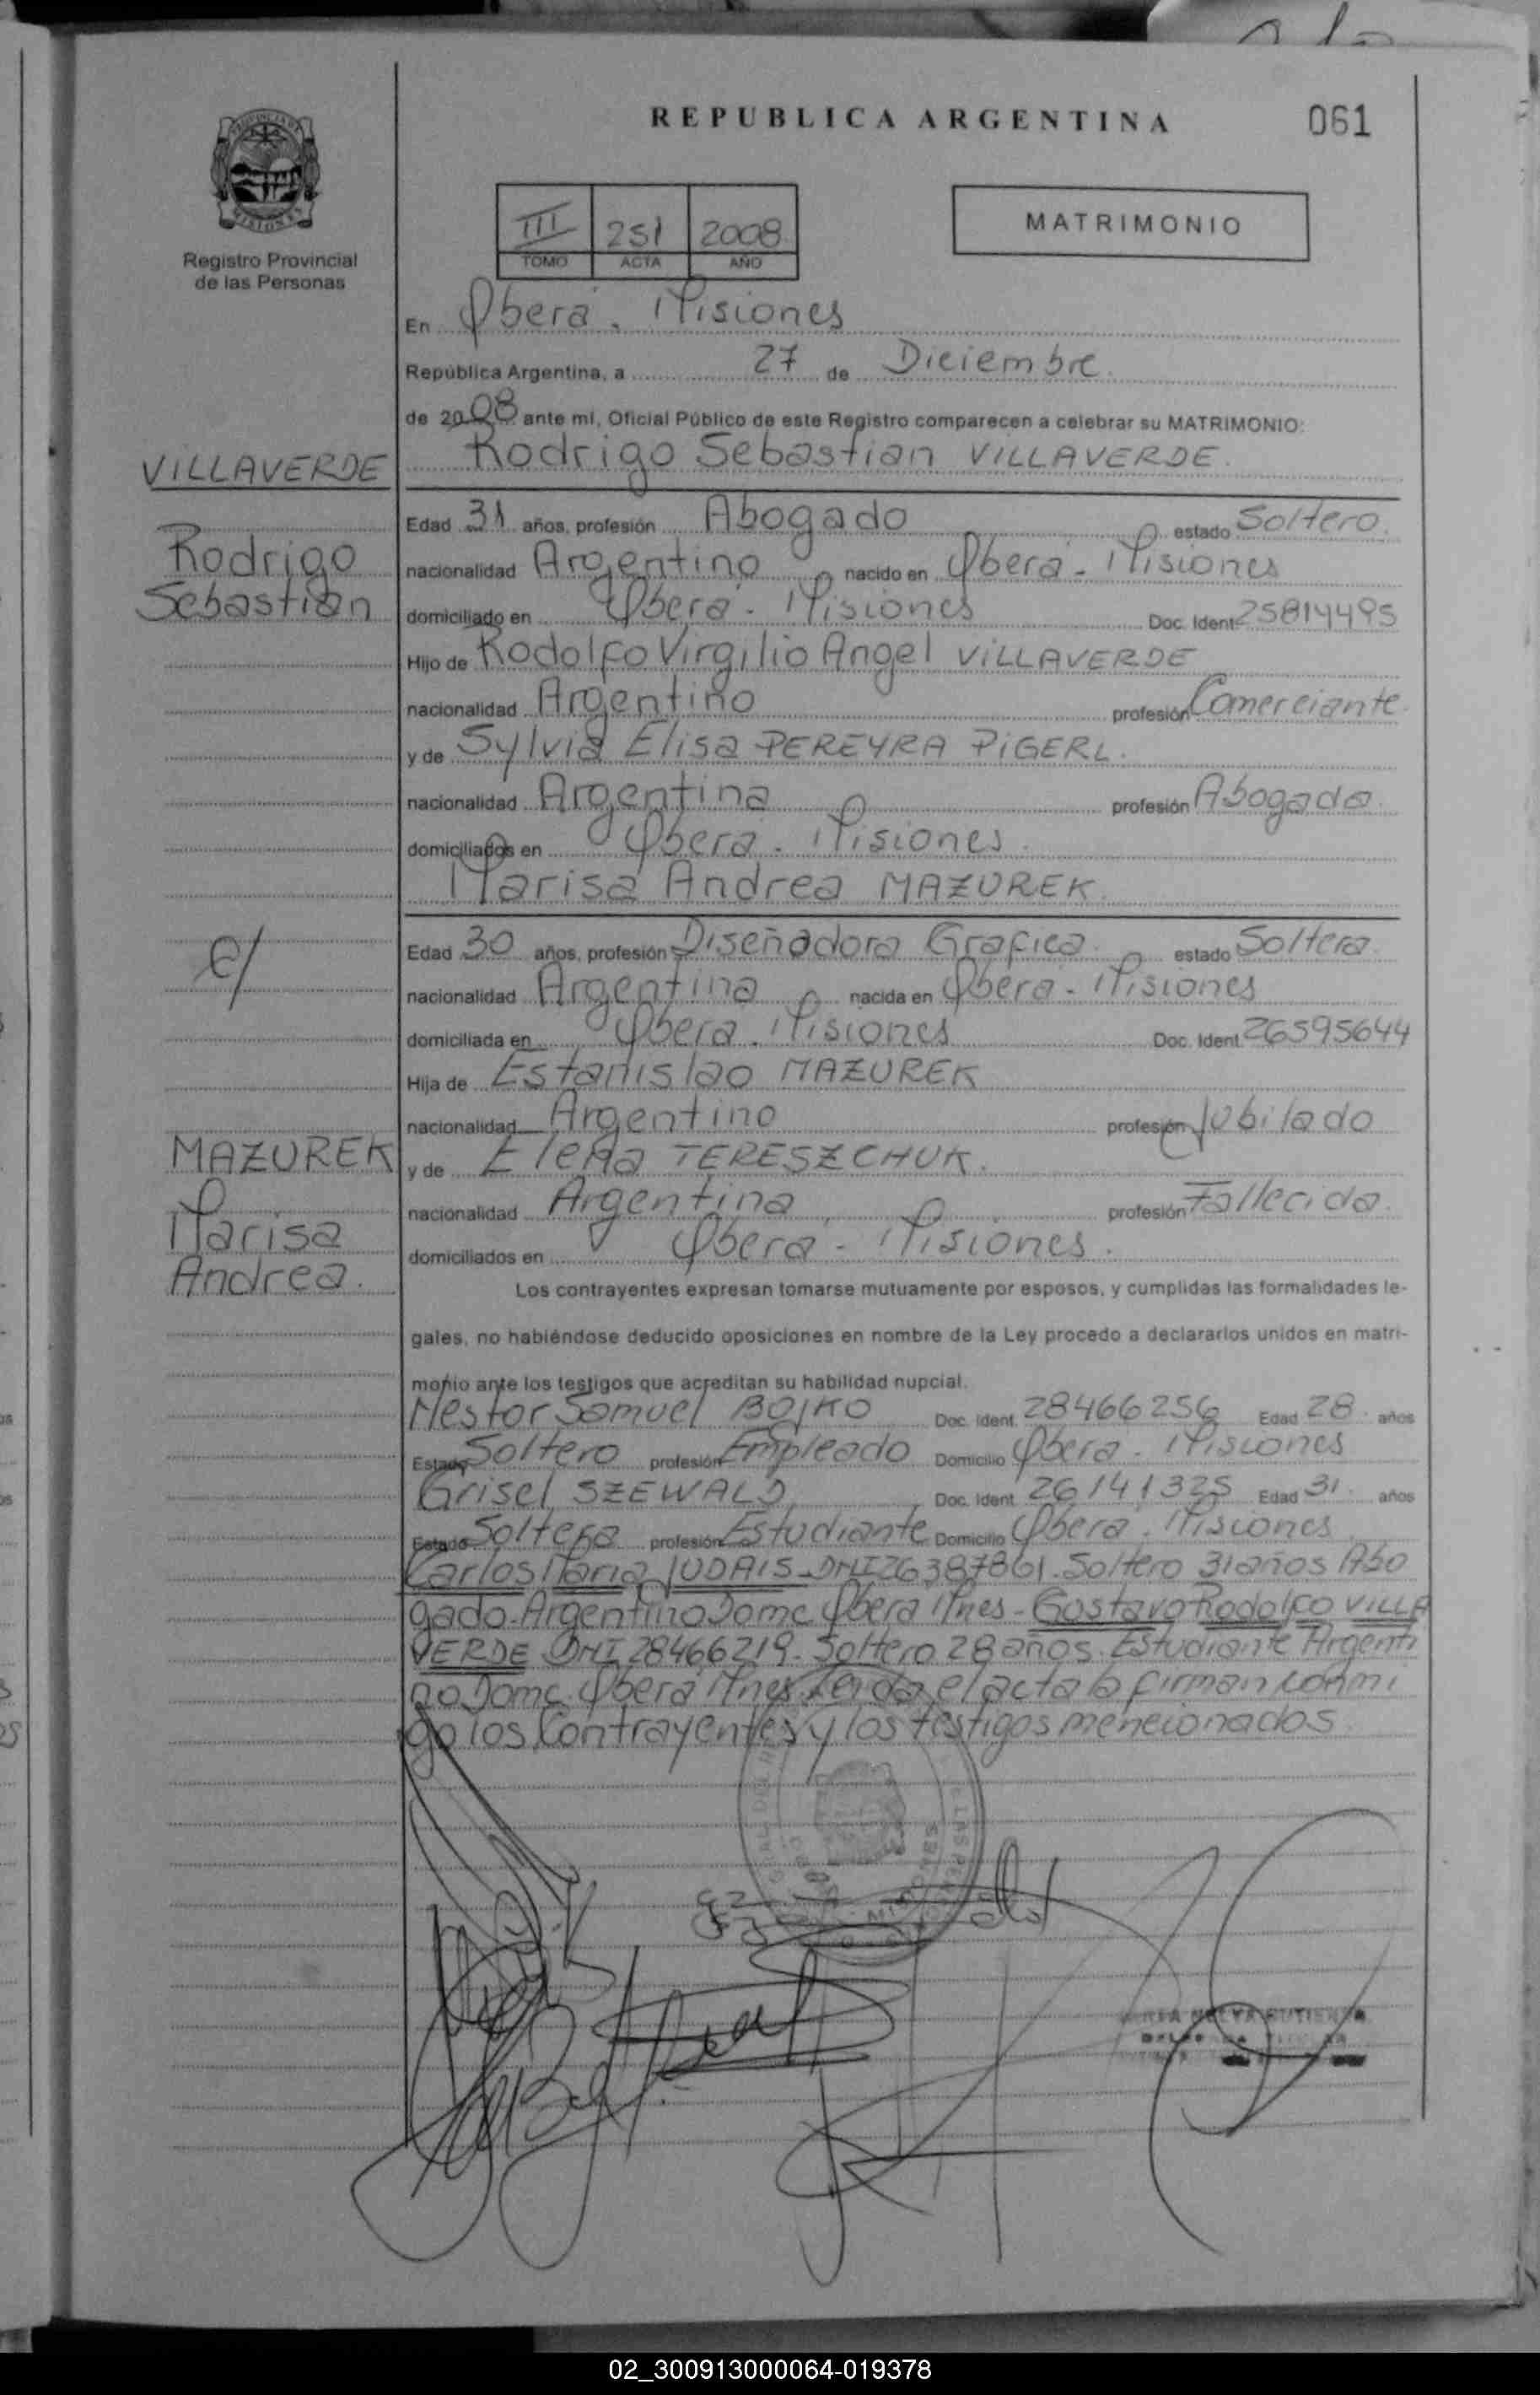 REPUBLICA ARGENTINA
061
PROVINCIA DE
MISIONES
Registro Provincial
de las Personas
III 251 2008
TOMO ACTA AÑO
MATRIMONIO
En Oberá. Misiones
República Argentina, a 27 de Diciembre
de 2008 ante mi, Oficial Público de este Registro comparecen a celebrar su MATRIMONIO:
VILLAVERDE
Rodrigo
Sebastián
Rodrigo Sebastian VILLAVERDE.
Edad 31 años, profesión Abogado estado Soltero.
nacionalidad Argentino nacido en Oberá - Misiones
domiciliado en Oberá - Misiones Doc. Ident 25814495
Hijo de Rodolfo Virgilio Angel VILLAVERDE
nacionalidad Argentino profesión Comerciante.
y de Sylvia Elisa PEREYRA PIGERL.
nacionalidad Argentina profesión Abogada.
domiciliados en Oberá - Misiones.
Marisa Andrea MAZUREK.
c/
Edad 30 años, profesión Diseñadora Grafica. estado Soltera.
nacionalidad Argentina nacida en Oberá - Misiones
domiciliada en Oberá. Misiones Doc. Ident 26595644
Hija de Estanislao MAZUREK
nacionalidad Argentino profesión Jubilado
MAZUREK
Marisa
Andrea.
y de Elena TERESZCHUK.
nacionalidad Argentina profesión Fallecida.
domiciliados en Oberá - Misiones.
Los contrayentes expresan tomarse mutuamente por esposos, y cumplidas las formalidades le-
gales, no habiéndose deducido oposiciones en nombre de la Ley procedo a declararlos unidos en matri-
monio ante los testigos que acreditan su habilidad nupcial.
Nestor Samuel BOJKO Doc. Ident. 28466256 Edad 28. años
Estado Soltero profesión Empleado Domicilio Oberá. Misiones
Grisel SZEWALD Doc. Ident. 26141325 Edad 31. años
Estado Soltera profesión Estudiante Domicilio Oberá. Misiones
Carlos Maria JUDAIS DNI 26387861. Soltero 31 años Abo
gado - Argentino Domc Oberá Mnes - Gustavo Rodolfo VILLA
VERDE DNI 28466219. Soltero 28 años. Estudiante Argenti
no Domc. Oberá Mnes. Leida el acta la firman conmi
go los Contrayentes y los testigos mencionados.
MISIONES
02_300913000064-019378